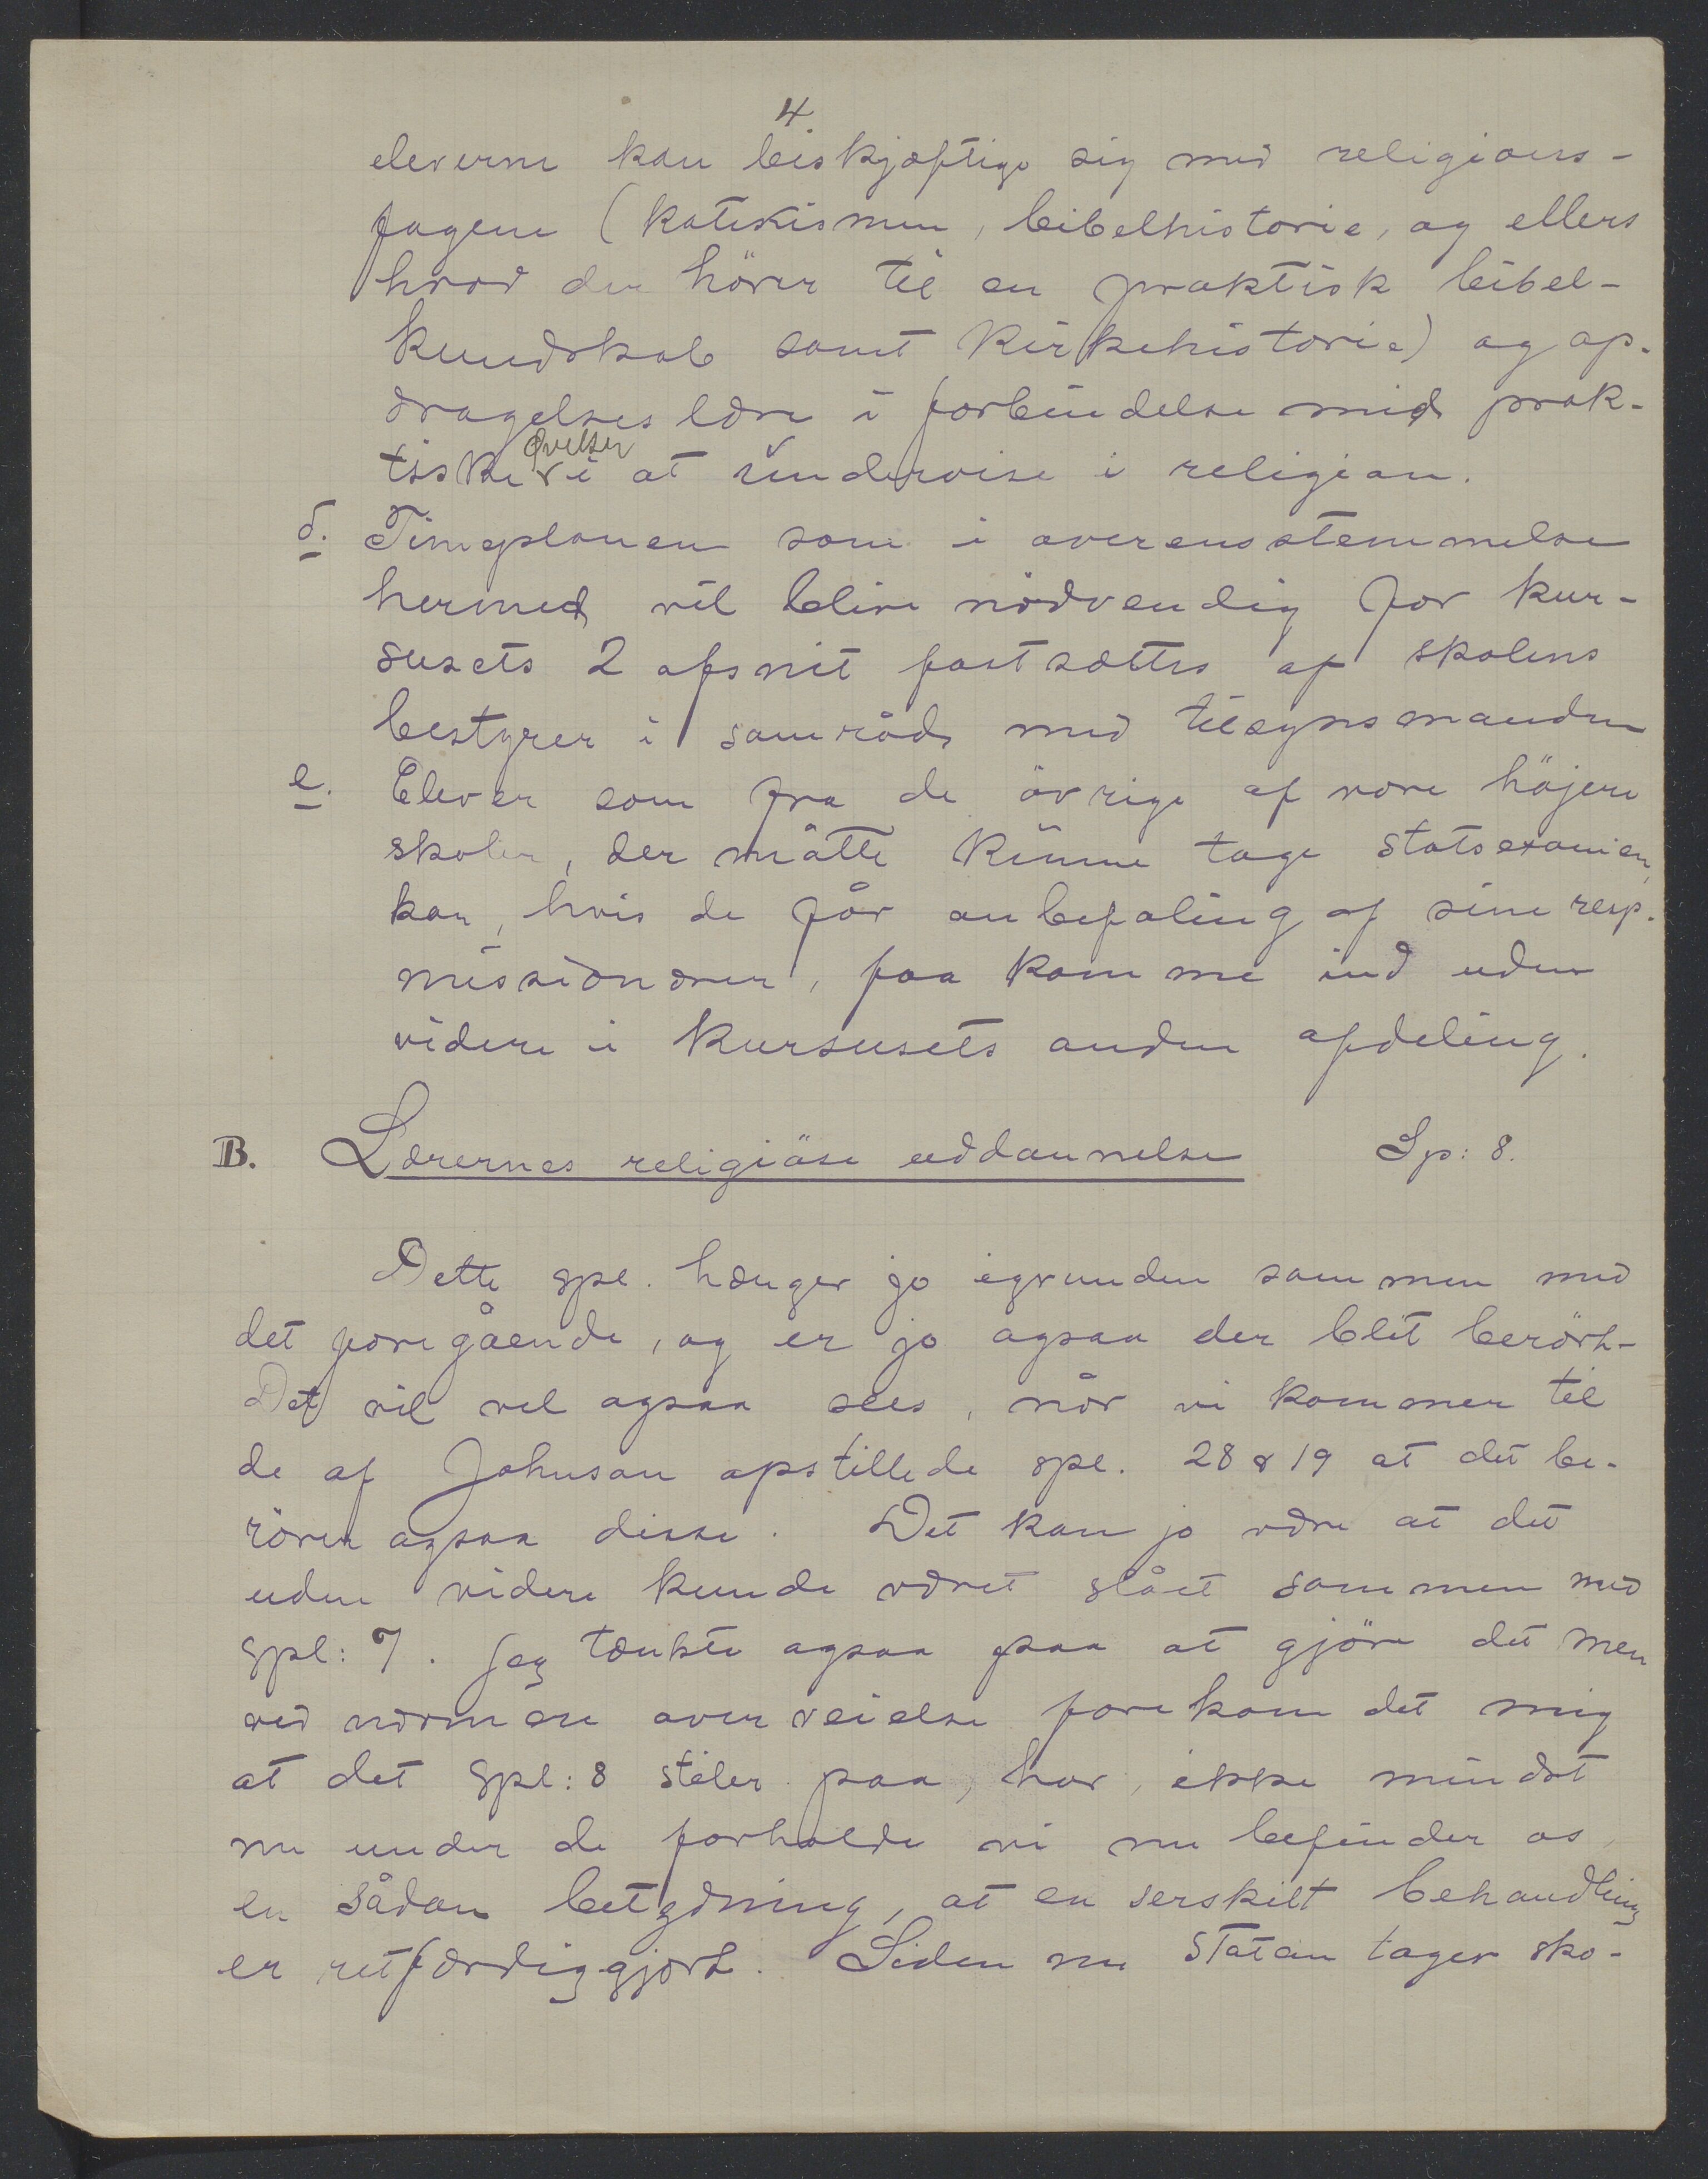 4
eleverne kan beskjæftige sig med religions-
fagene (katekismen, bibelhistorie, og ellers
hvad der hører til en praktisk bibel-
kundskab samt kirkehistorie) og op-
dragelseslære i forbindelse med prak-
tiske øvelser i at undervise i religion.
d. Timeplanen som i overensstemmelse
hermed vil blive nødvendig for kur-
susets 2 afsnit fastsættes af skolens
bestyrer i samråd med tilsynsmanden
e. Elever som fra de övrige af vore höjere
skoler, der måtte kunne tage statsexamen,
kan, hvis de får anbefaling af sine resp.
missionærer, faa komme ind uden
videre i kursusets anden afdeling.
B. Lærernes religiöse uddannelse Sp: 8.
Dette spl. hænger jo igrunden sammen med
det foregående, og er jo ogsaa der blit berört-
Det vil vel ogsaa sees, når vi kommer til
de af Johnson opstillede spl. 28 & 19 at det be-
rörer ogsaa disse. Det kan jo være at det
uden videre kunde været slået sammen med
spl: 7. Jeg tænkte ogsaa paa at gjöre det men
ved nærmere overveielse forekom det mig
at det spl: 8 stiler paa, har, ikke mindst
nu under de forholde vi nu befinder os,
en sådan betydning, at en serskilt behandling
er retfærdiggjort. Siden nu staten tager sko-